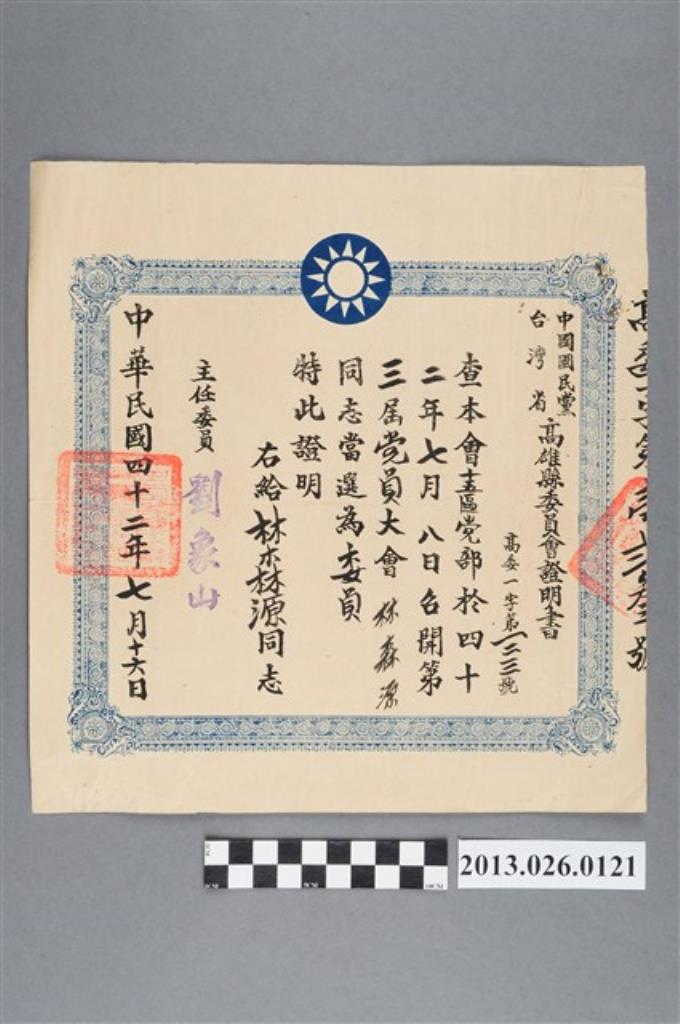 中國國民黨
台灣省
高雄縣委員會證明書
高委一字第一二三號
查本會 區党部於四十
二年七月八日召開第
三屆党員大會林森源
同志當選為委員
特此證明
右給林森源同志
主任委員 劉象山
中華民國四十二年七月十六日
2013.026.0121